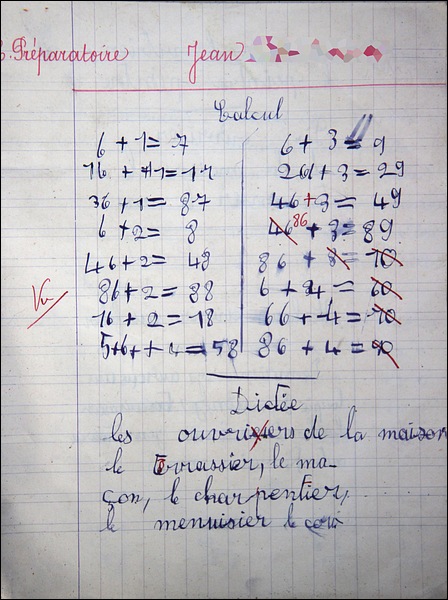 C. Préparatoire Jean
Calcul
6 + 1 = 7
16 + 1 = 17
36 + 1 = 87
6 + 2 = 8
46 + 2 = 48
86 + 2 = 88
16 + 2 = 18
5+6++4 = 58
6 + 3 = 9
26 + 3 = 29
46 + 3 = 49
46 86 + 3 = 89
86 + 8 = 10
6 + 4 = 60
66 + 4 = 70
86 + 4 = 90
Vu
Dictée
les ouvriers de la maison
le terrassier, le ma-
çon, le charpentier,
le menuisier le